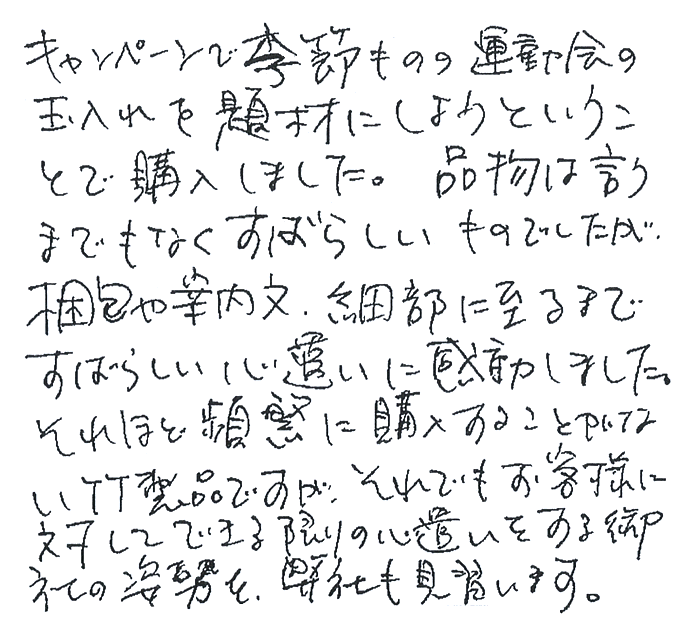 キャンペーンで季節ものの運動会の
玉入れを題材にしようというこ
とで購入しました。 品物は言う
までもなくすばらしいものでしたが、
梱包や案内文、細部に至るまで
すばらしい心遣いに感動しました。
それほど頻繁に購入することがな
い 製品ですが、それでもお客様に
対してできる限りの心遣いをする御
社の姿勢を、弊社も見習います。